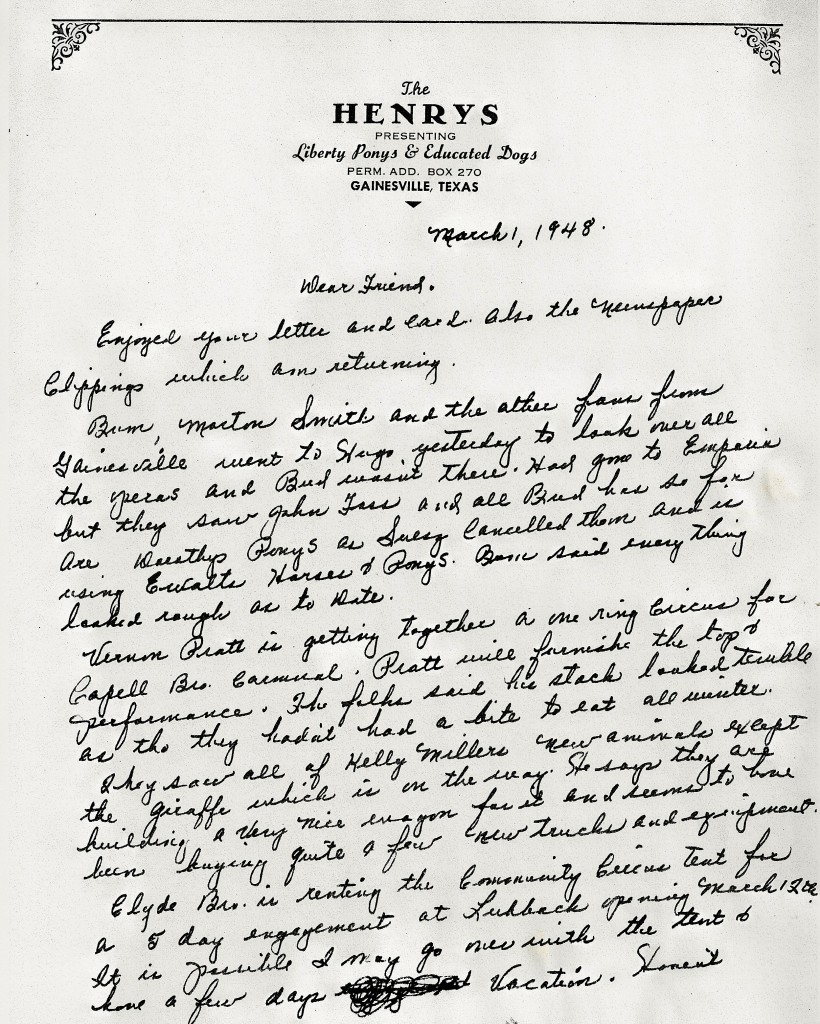 The
HENRYS
PRESENTING
Liberty Ponys & Educated Dogs
PERM. ADD. BOX 270
GAINESVILLE, TEXAS
March 1, 1948.
Dear Friend.
Enjoyed your letter and card. Also the Newspaper
Clippings which am returning.
Bum, Morton Smith and the other fans from
Gainesville went to Hugo yesterday to look over all
the operas and Bud wasn't there. Had gone to Emporia
but they saw John Foss and all Bud has so far
are Dorothys Ponys as Suesz Cancelled them and is
using Ewalts Horses & Ponys. Bum said everything
looked rough as to Date.
Vernon Pratt is getting together a one ring Circus for
Capell Bro. Carnival. Pratt will furnish the top &
performance. The folks said his stock looked terrible
as tho they hadn't had a bite to eat all winter.
They saw all of Kelly Millers new animals except
the giraffe which is on the way. He says they are
building a Very Nice wagon for it and seems to have
been buying quite a few new trucks and equipment.
Clyde Bro. is renting the Community Circus tent for
a 5 day engagement at Lubbock opening March 12th
It is possible I may go over with the tent &
have a few days Vacation. Haven't